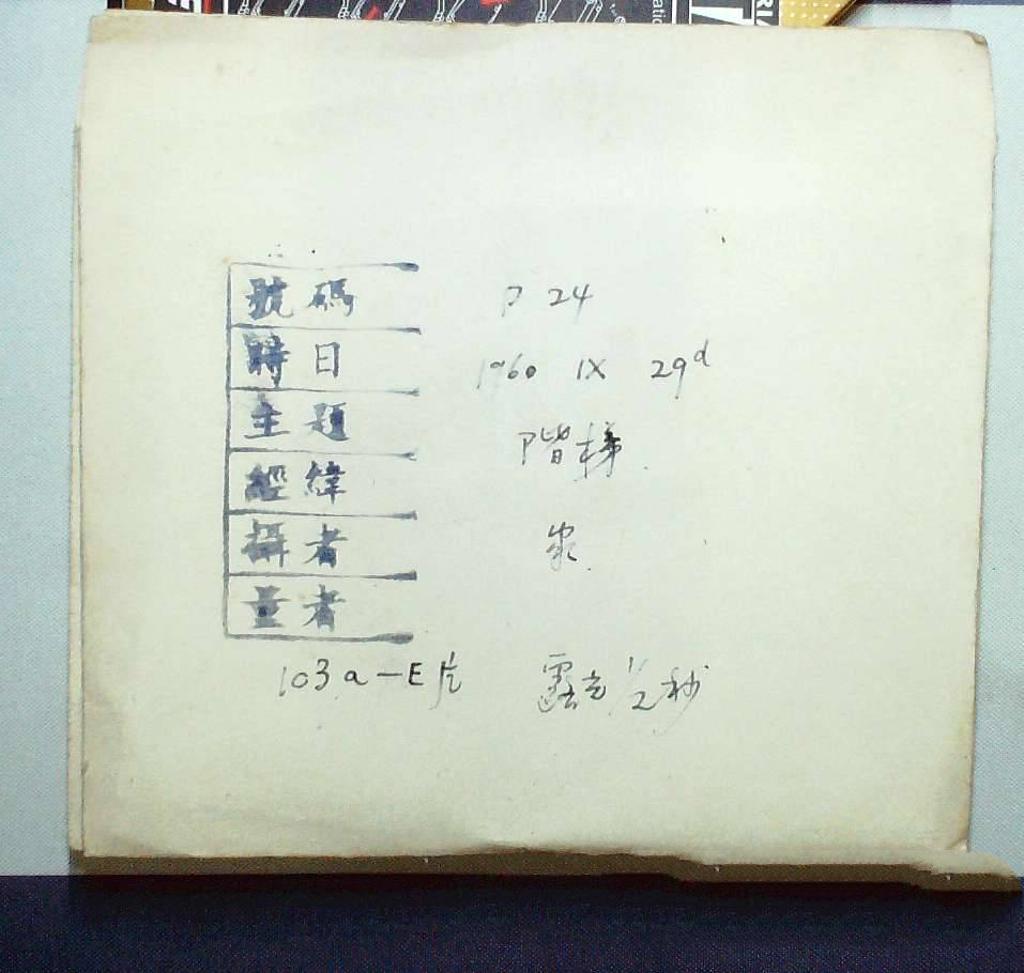 號碼 P 24
時日 1960 IX 29d
主題 階梯
經緯
攝者
量者
103a-E片 露光 1/2 秒